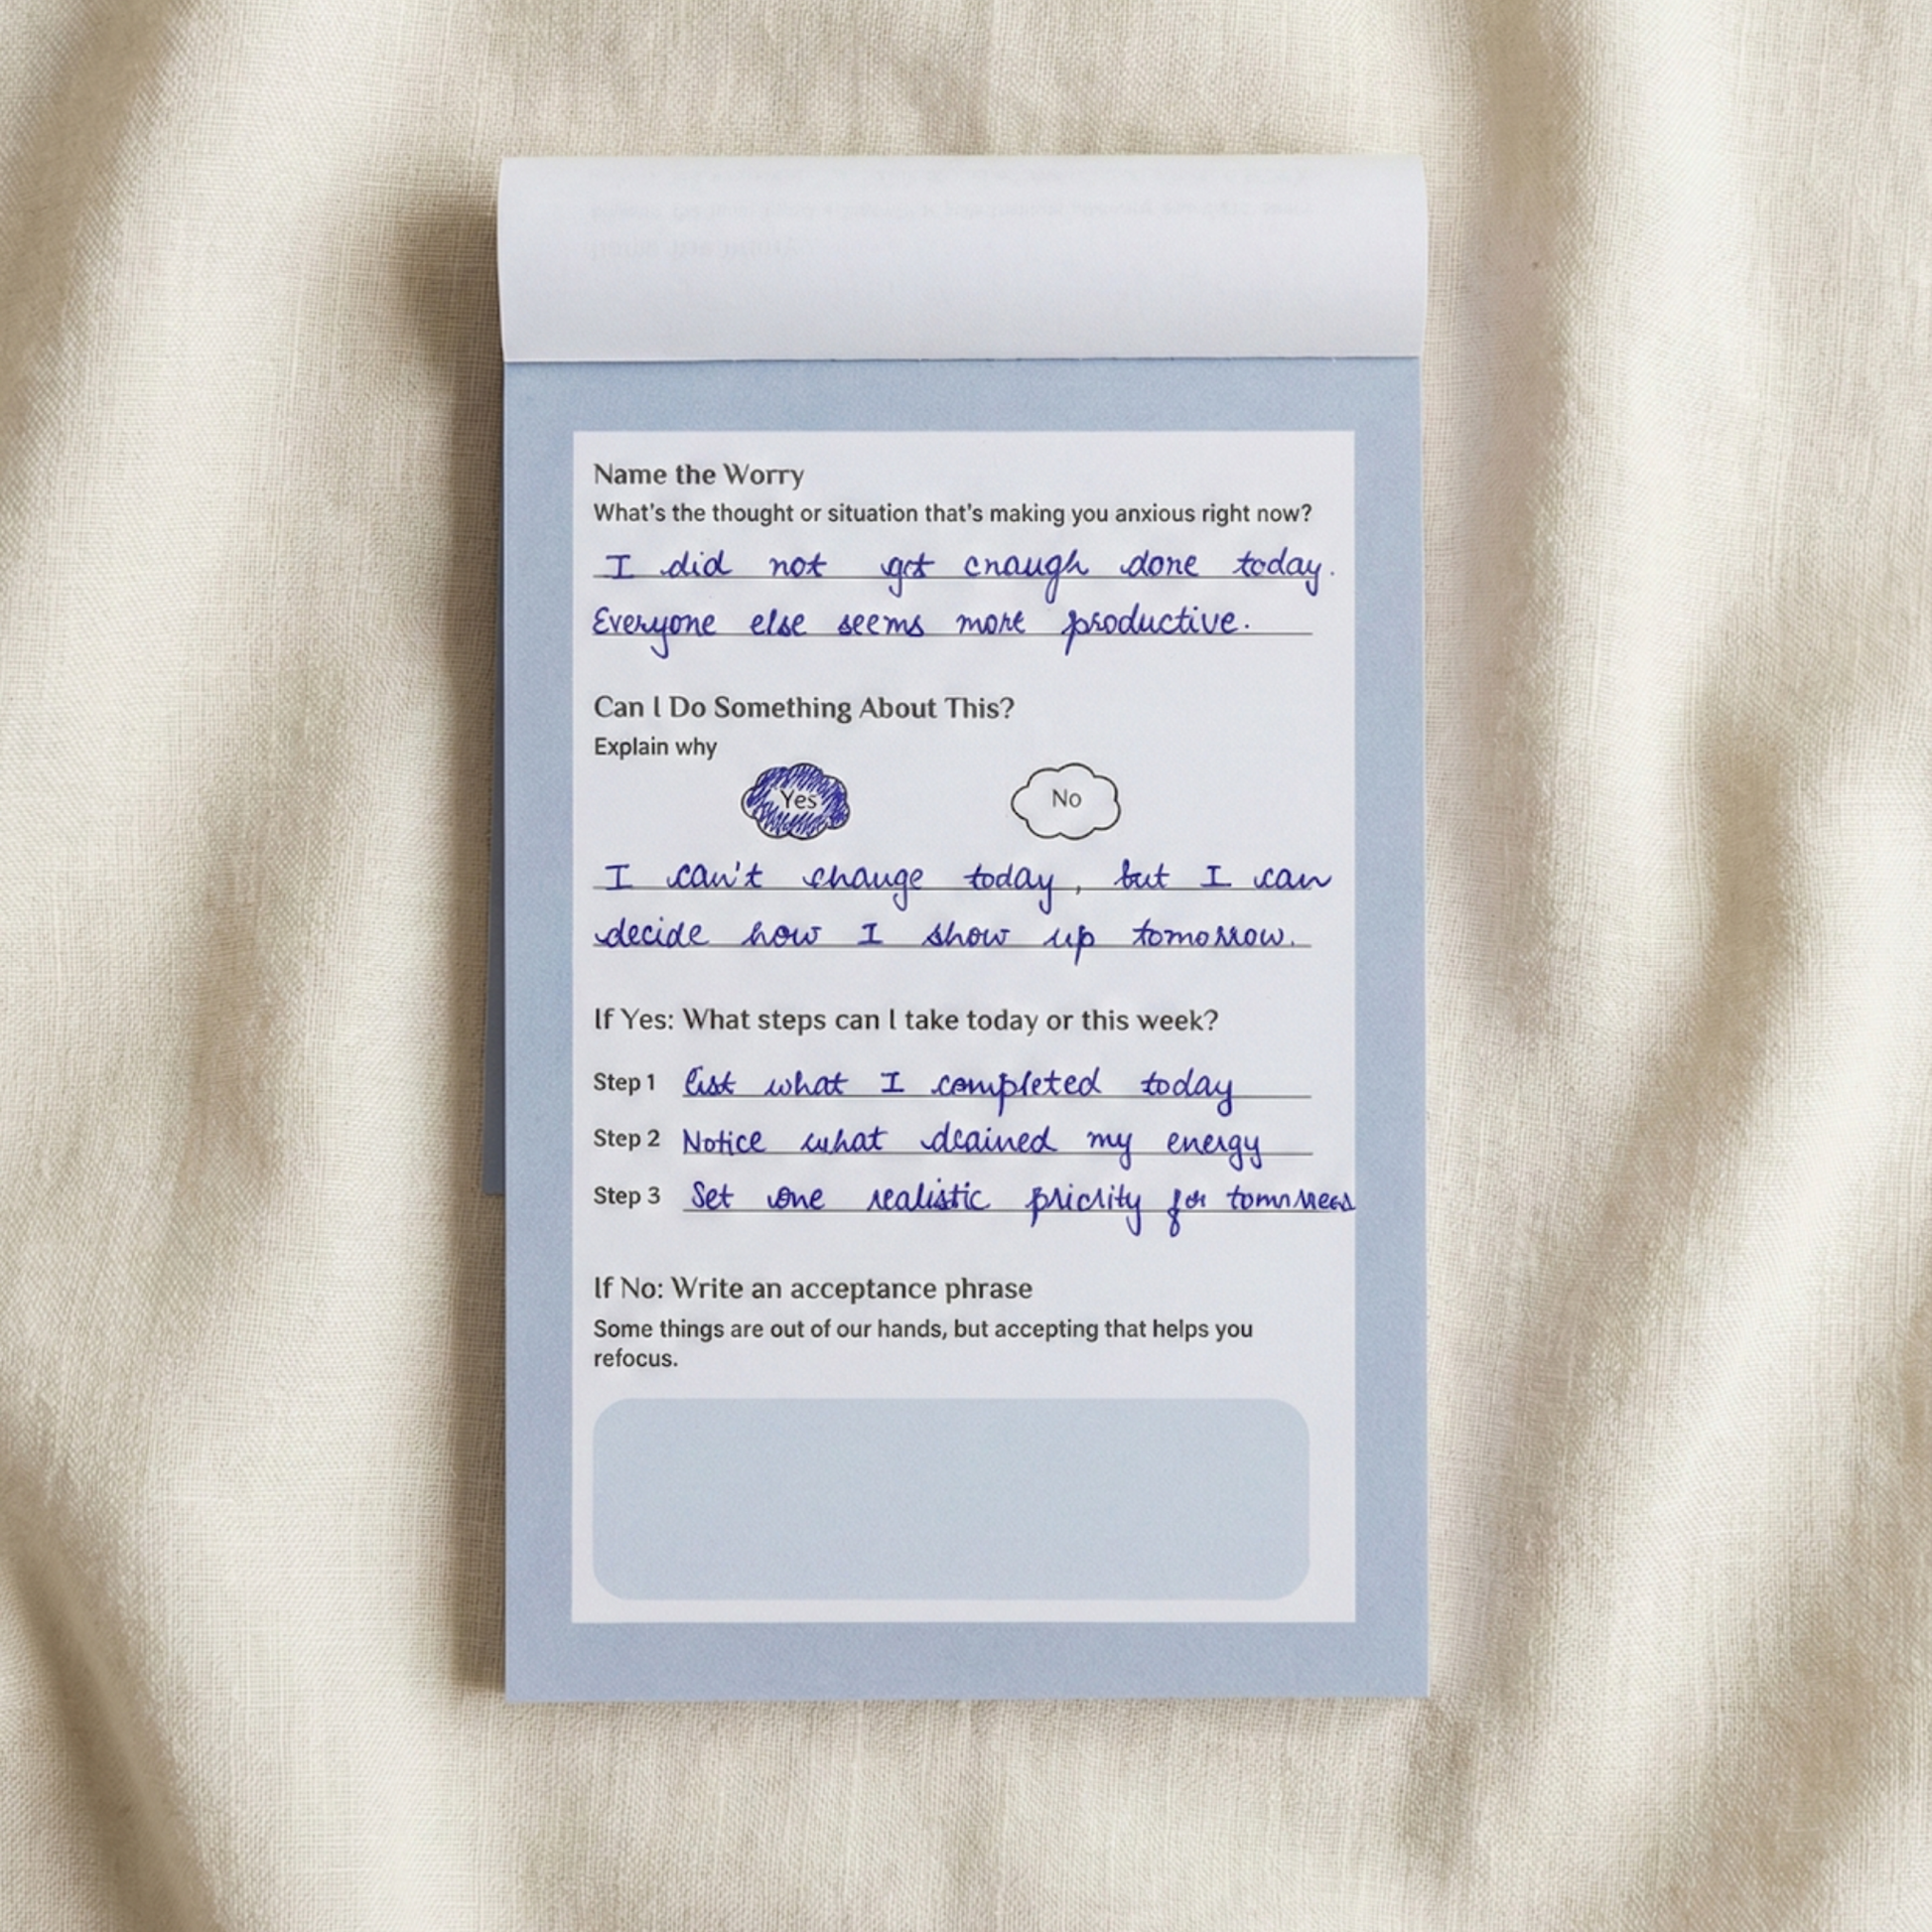 Name the Worry
What's the thought or situation that's making you anxious right now?
I did not get enough done today.
Everyone else seems more productive.
Can I Do Something About This?
Explain why
Yes No
I can't change today, but I can
decide how I show up tomorrow.
If Yes: What steps can I take today or this week?
Step 1 list what I completed today
Step 2 Notice what drained my energy
Step 3 Set one realistic priority for tomorrow
If No: Write an acceptance phrase
Some things are out of our hands, but accepting that helps you
refocus.